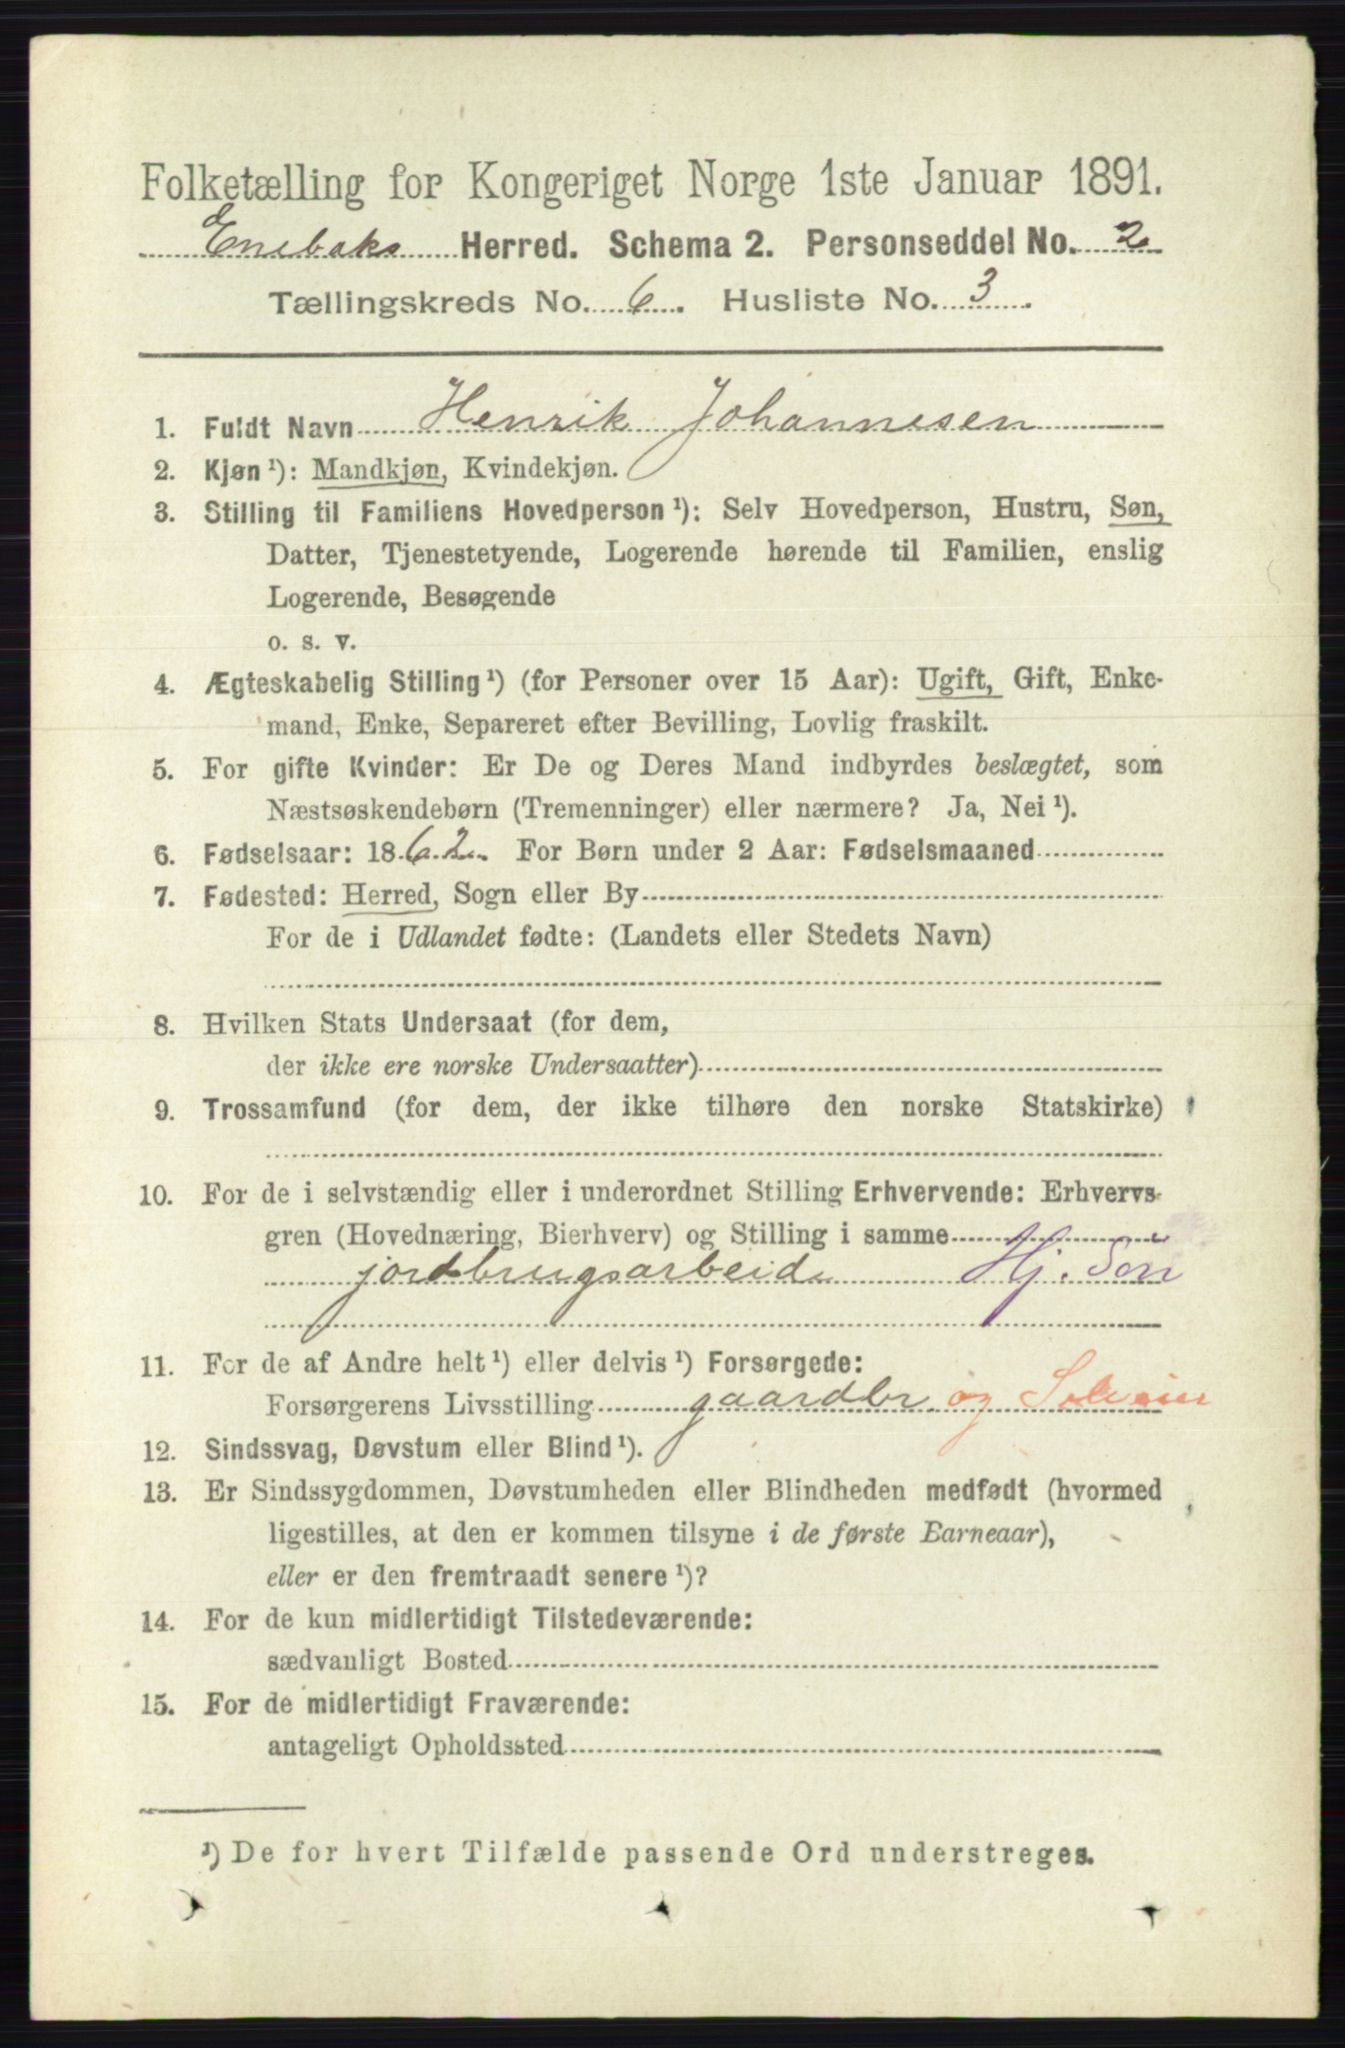 Folketælling for Kongeriget Norge 1ste Januar 1891.
Enebaks Herred. Schema 2. Personseddel No. 2
Tællingskreds No. 6. Husliste No. 3.
1. Fuldt Navn Henrik Johannesen
2. Kjøn ¹): Mandkjøn, Kvindekjøn.
3. Stilling til Familiens Hovedperson ¹): Selv Hovedperson, Hustru, Søn,
Datter, Tjenestetyende, Logerende hørende til Familien, enslig
Logerende, Besøgende
o. s. v.
4. Ægteskabelig Stilling ¹) (for Personer over 15 Aar): Ugift, Gift, Enke-
mand, Enke, Separeret efter Bevilling, Lovlig fraskilt.
5. For gifte Kvinder: Er De og Deres Mand indbyrdes beslægtet, som
Næstsøskendebørn (Tremenninger) eller nærmere? Ja, Nei ¹).
6. Fødselsaar: 1862. For Børn under 2 Aar: Fødselsmaaned
7. Fødested: Herred, Sogn eller By
For de i Udlandet fødte: (Landets eller Stedets Navn)
8. Hvilken Stats Undersaat (for dem,
der ikke ere norske Undersaatter)
9. Trossamfund (for dem, der ikke tilhøre den norske Statskirke)
10. For de i selvstændig eller i underordnet Stilling Erhvervende: Erhvervs-
gren (Hovednæring, Bierhverv) og Stilling i samme
jordbrugsarbeide Hj. Søn
11. For de af Andre helt ¹) eller delvis ¹) Forsørgede:
Forsørgerens Livsstilling gaardbr. og Selveier
12. Sindssvag, Døvstum eller Blind ¹).
13. Er Sindssygdommen, Døvstumheden eller Blindheden medfødt (hvormed
ligestilles, at den er kommen tilsyne i de første Barneaar),
eller er den fremtraadt senere ¹)?
14. For de kun midlertidigt Tilstedeværende:
sædvanligt Bosted
15. For de midlertidigt Fraværende:
antageligt Opholdssted
¹) De for hvert Tilfælde passende Ord understreges.